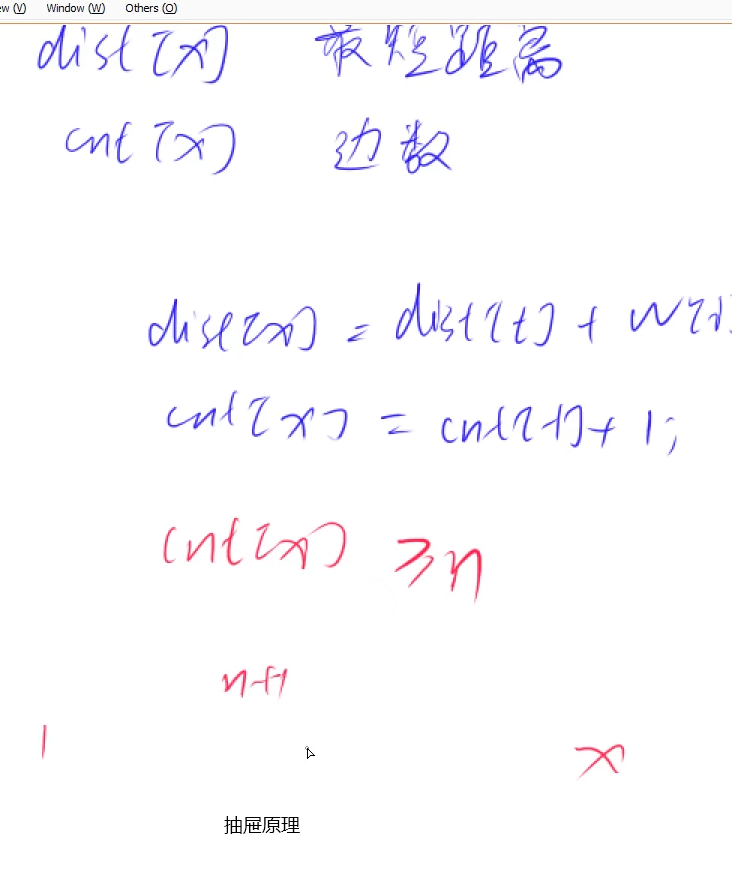 Window (W) Others (O)
dist[x] 最短距离
cnt[x] 边数
dist[x] = dist[t] + w[i]
cnt[x] = cnt[t] + 1;
cnt[x] ≥ n
n+1
1 x
抽屉原理